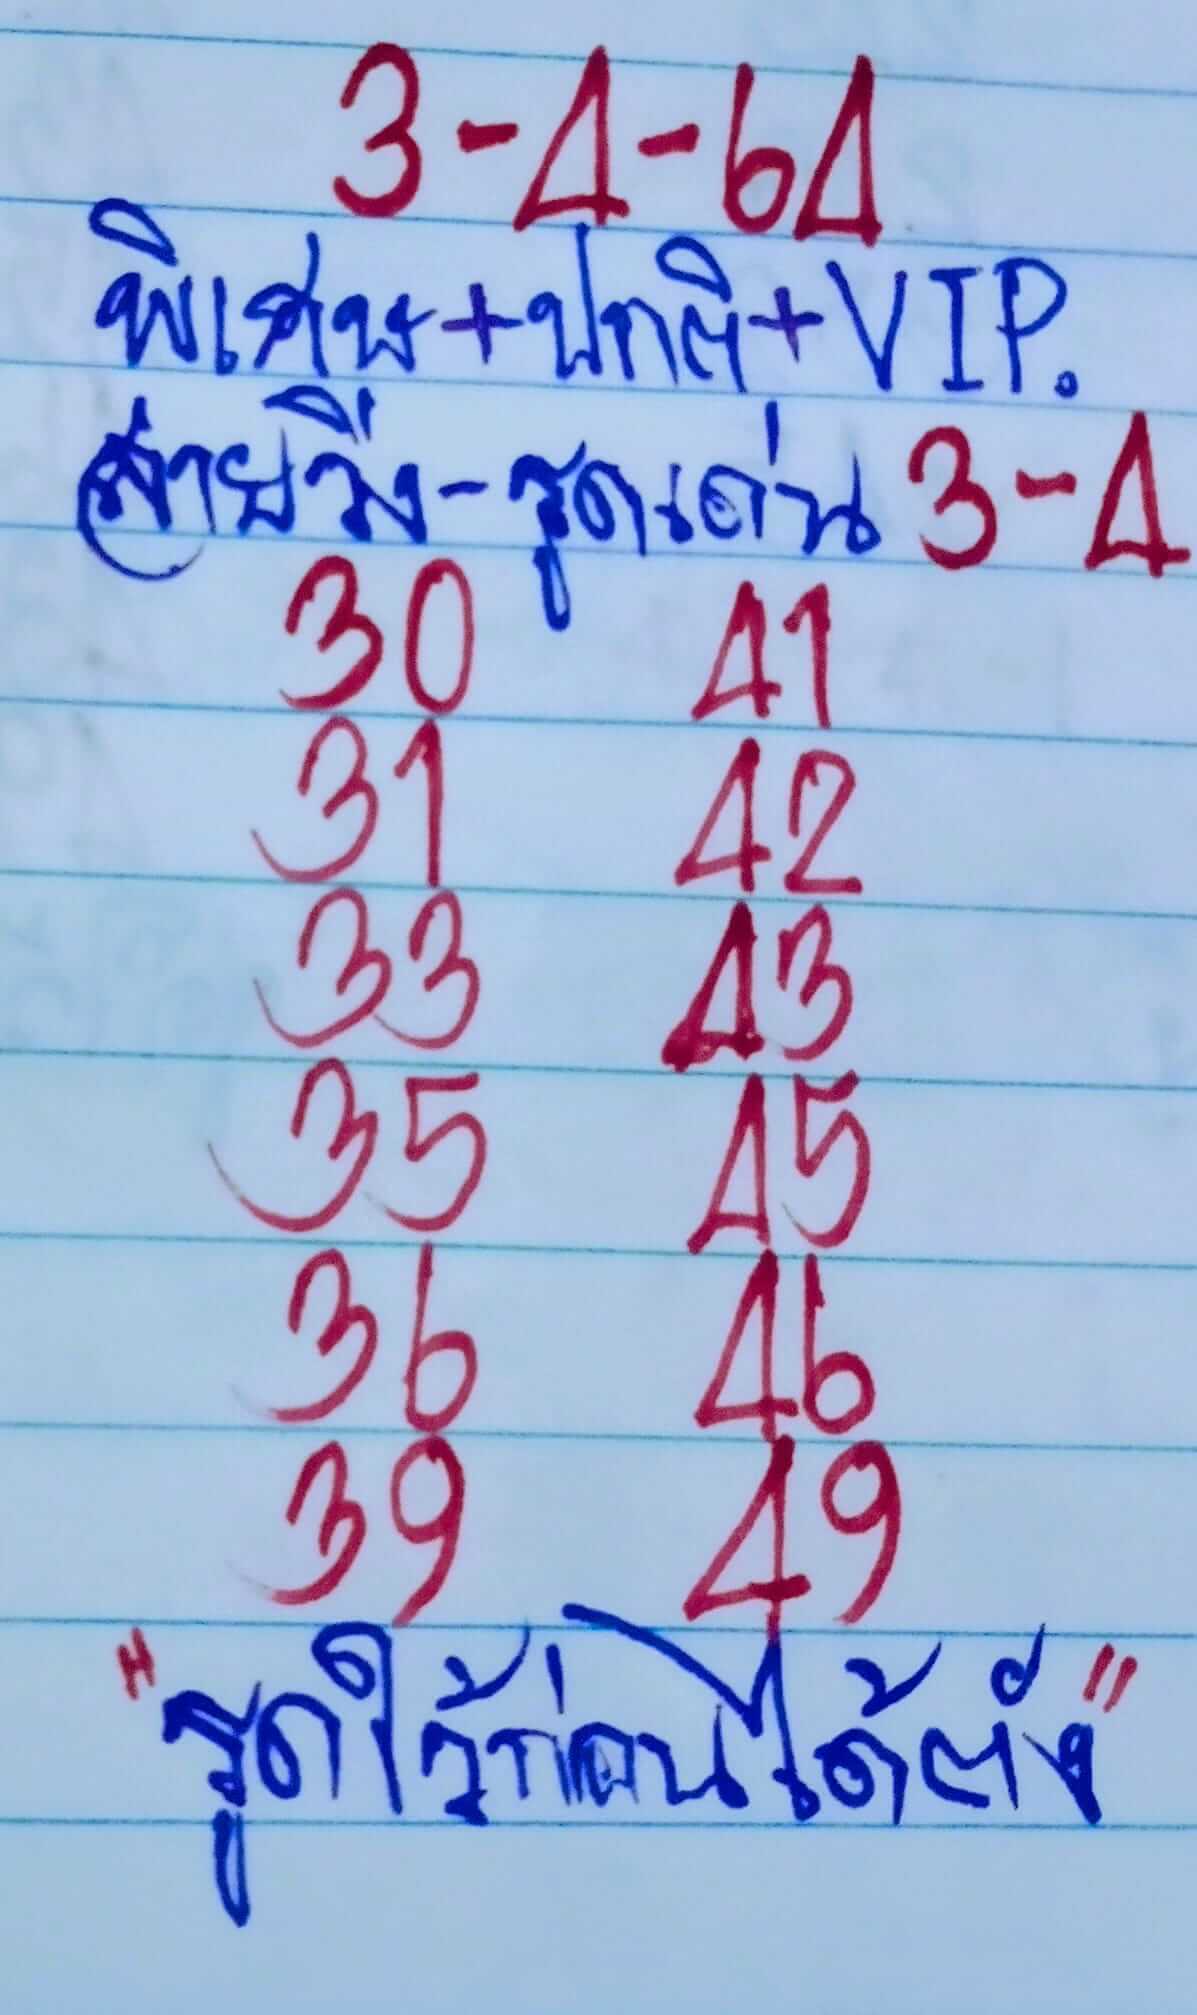 3-4-64
พิเศษ+ปกติ+VIP.
สายวิ่ง-รูดเด่น 3-4
30 41
31 42
33 43
35 45
36 46
39 49
"รูดไว้ก่อนได้ตัง"